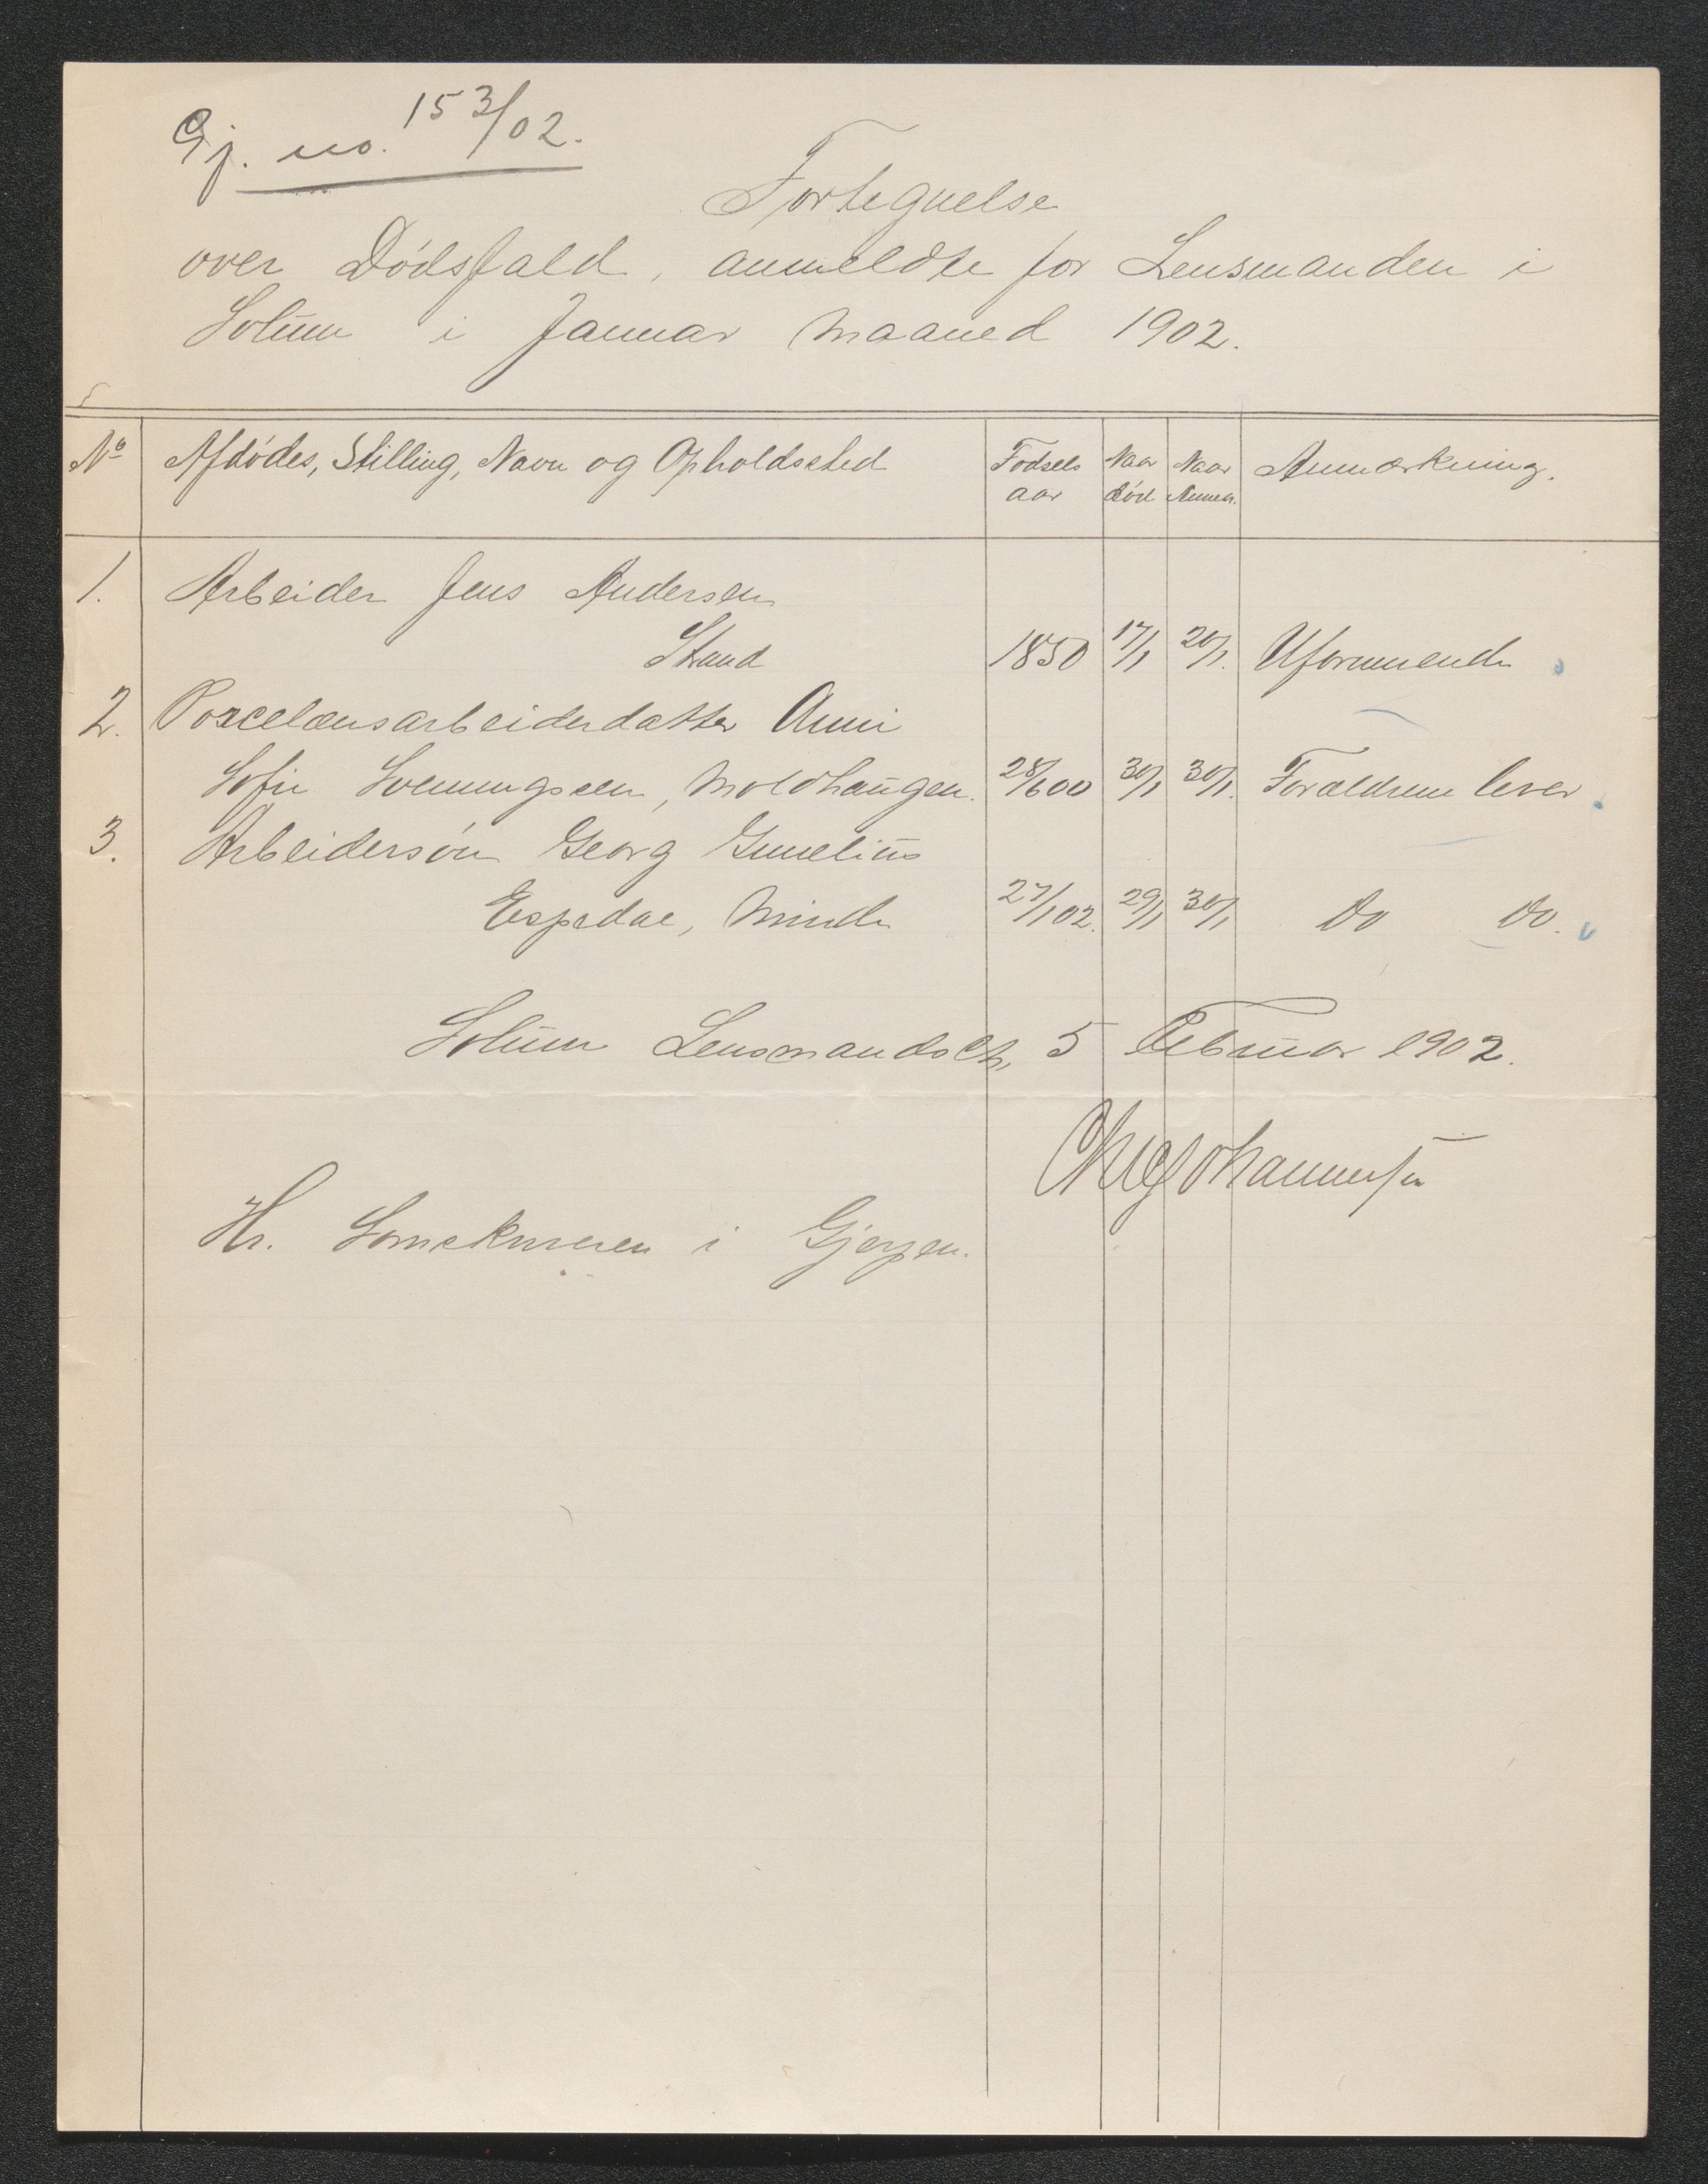 Gj. no. 153/02.
Fortegnelse
over Dödsfald, anmeldte for Lensmanden i
Solum i Januar Maaned 1902.
No Afdödes, Stilling, Navn og Opholdssted Födsels aar Naar död Naar Anm. Anmærkning.
1. Arbeider Jens Andersen
Strand 1850 17/1 20/1. Uformuende
2. Porcelænsarbeiderdatter Anni
Sofie, Moldhaugen. 28/6 00 30/1 30/1. Forældrene lever.
3. Arbeidersön Georg
Espedal, Minde 27/1 02. 29/1 30/1 Do Do.
Solum Lensmandsetn 5 Februar 1902.
Johannessen
Hr. Sorenskriveren i Gjerpen.